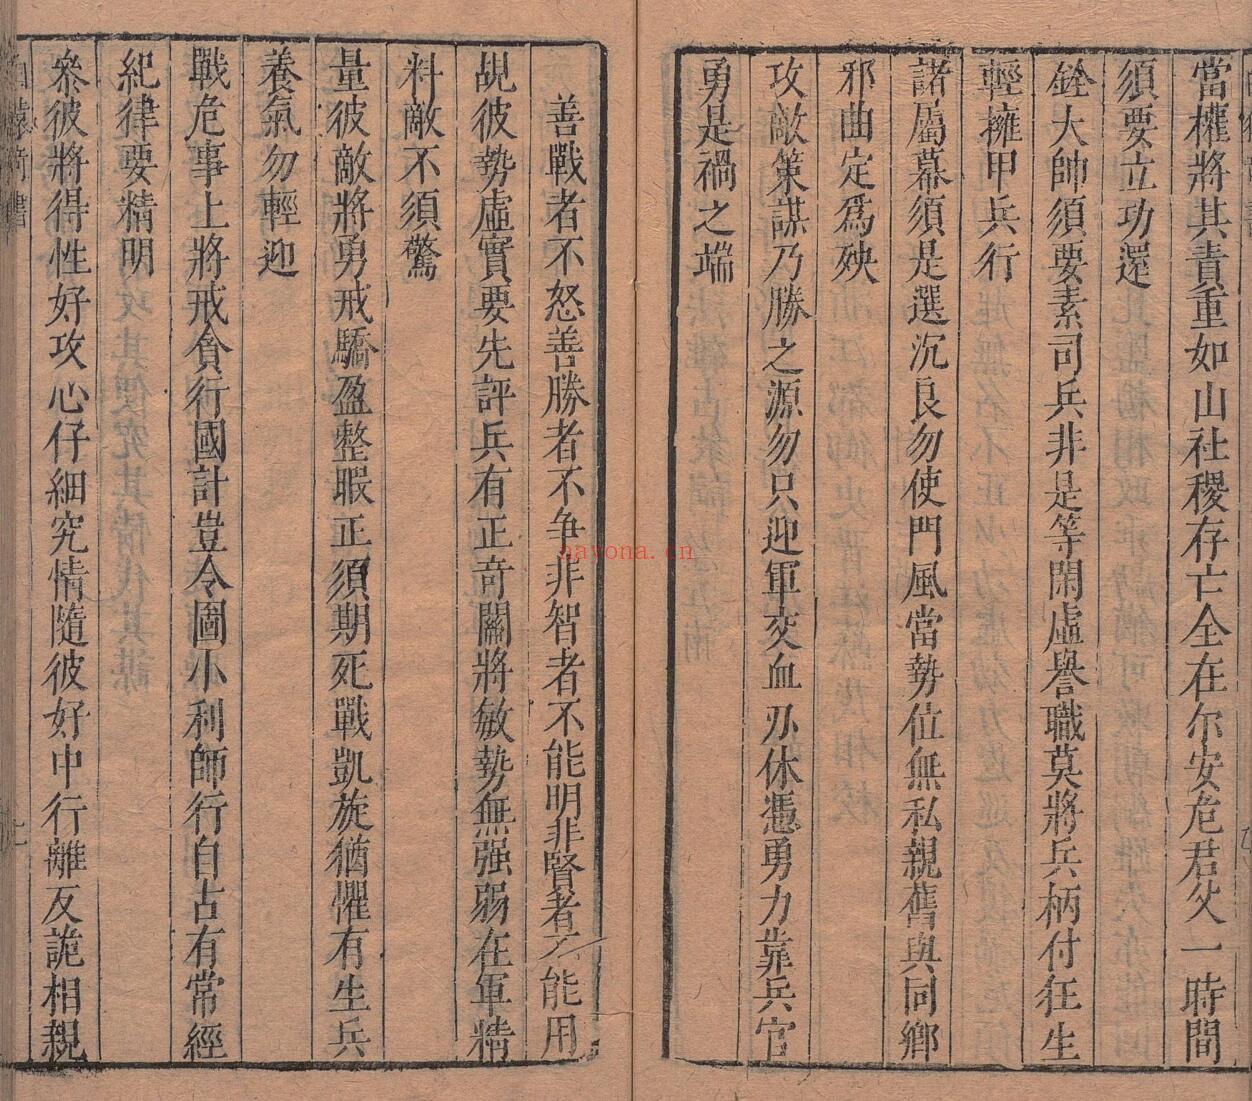 當權將其責重如山社稷存亡全在尔安危君父一時間
須要立功還
銓大帥須要素司兵非是等閑虛譽職莫將兵柄付狂生
輕擁甲兵行
諸屬幕須是選沉良勿使門風當勢位無私親舊與同鄉
邪曲定爲殃
攻敵策謀乃勝之源勿只迎軍交血刃休憑勇力靠兵官
勇是禍之端
善戰者不怒善勝者不争非智者不能明非賢者不能用
覘彼勢虛實要先評兵有正奇關將敏勢無强弱在軍精
料敵不須驚
量彼敵將勇戒驕盈整暇正須期死戰凱旋猶懼有生兵
養氣勿輕迎
戰危事上將戒貪行國計豈令圖小利師行自古有常經
紀律要精明
叅彼將得性好攻心仔細究情隨彼好中行離反詭相親
nayona.cn